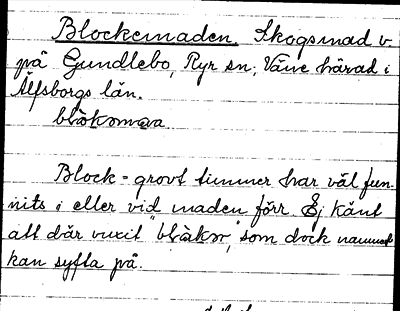 Blockemaden. Skogsmad v.
på Gundlebo, Ryr sn, Väne härad i
Älfsborgs län.
Block = grovt timmer har väl fun-
nits i eller vid maden förr. Ej känt
att där vuxit "blåkor", som dock namnet
kan syfta på.